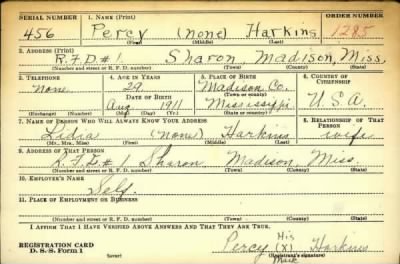 SERIAL NUMBER 1. NAME (Print) ORDER NUMBER
456 Percy (none) Harkins 1285
(First) (Middle) (Last)
2. ADDRESS (Print)
R.F.D.#1 Sharon Madison, Miss.
(Number and street or R. F. D. number) (Town) (County) (State)
3. TELEPHONE 4. AGE IN YEARS 5. PLACE OF BIRTH 6. COUNTRY OF CITIZENSHIP
none 29 Madison Co.
DATE OF BIRTH (Town or county)
Aug 1911 Mississippi U.S.A.
(Exchange) (Number) (Mo.) (Day) (Yr.) (State or country)
7. NAME OF PERSON WHO WILL ALWAYS KNOW YOUR ADDRESS 8. RELATIONSHIP OF THAT PERSON
Lidia (none) Harkins wife
(Mr., Mrs., Miss) (First) (Middle) (Last)
9. ADDRESS OF THAT PERSON
R.F.D.#1 Sharon Madison, Miss.
(Number and street or R. F. D. number) (Town) (County) (State)
10. EMPLOYER'S NAME
Self
11. PLACE OF EMPLOYMENT OR BUSINESS
(Number and street or R. F. D. number) (Town) (County) (State)
I AFFIRM THAT I HAVE VERIFIED ABOVE ANSWERS AND THAT THEY ARE TRUE.
His
REGISTRATION CARD Percy (X) Harkins
D. S. S. Form 1 (Registrant's signature)
Mark